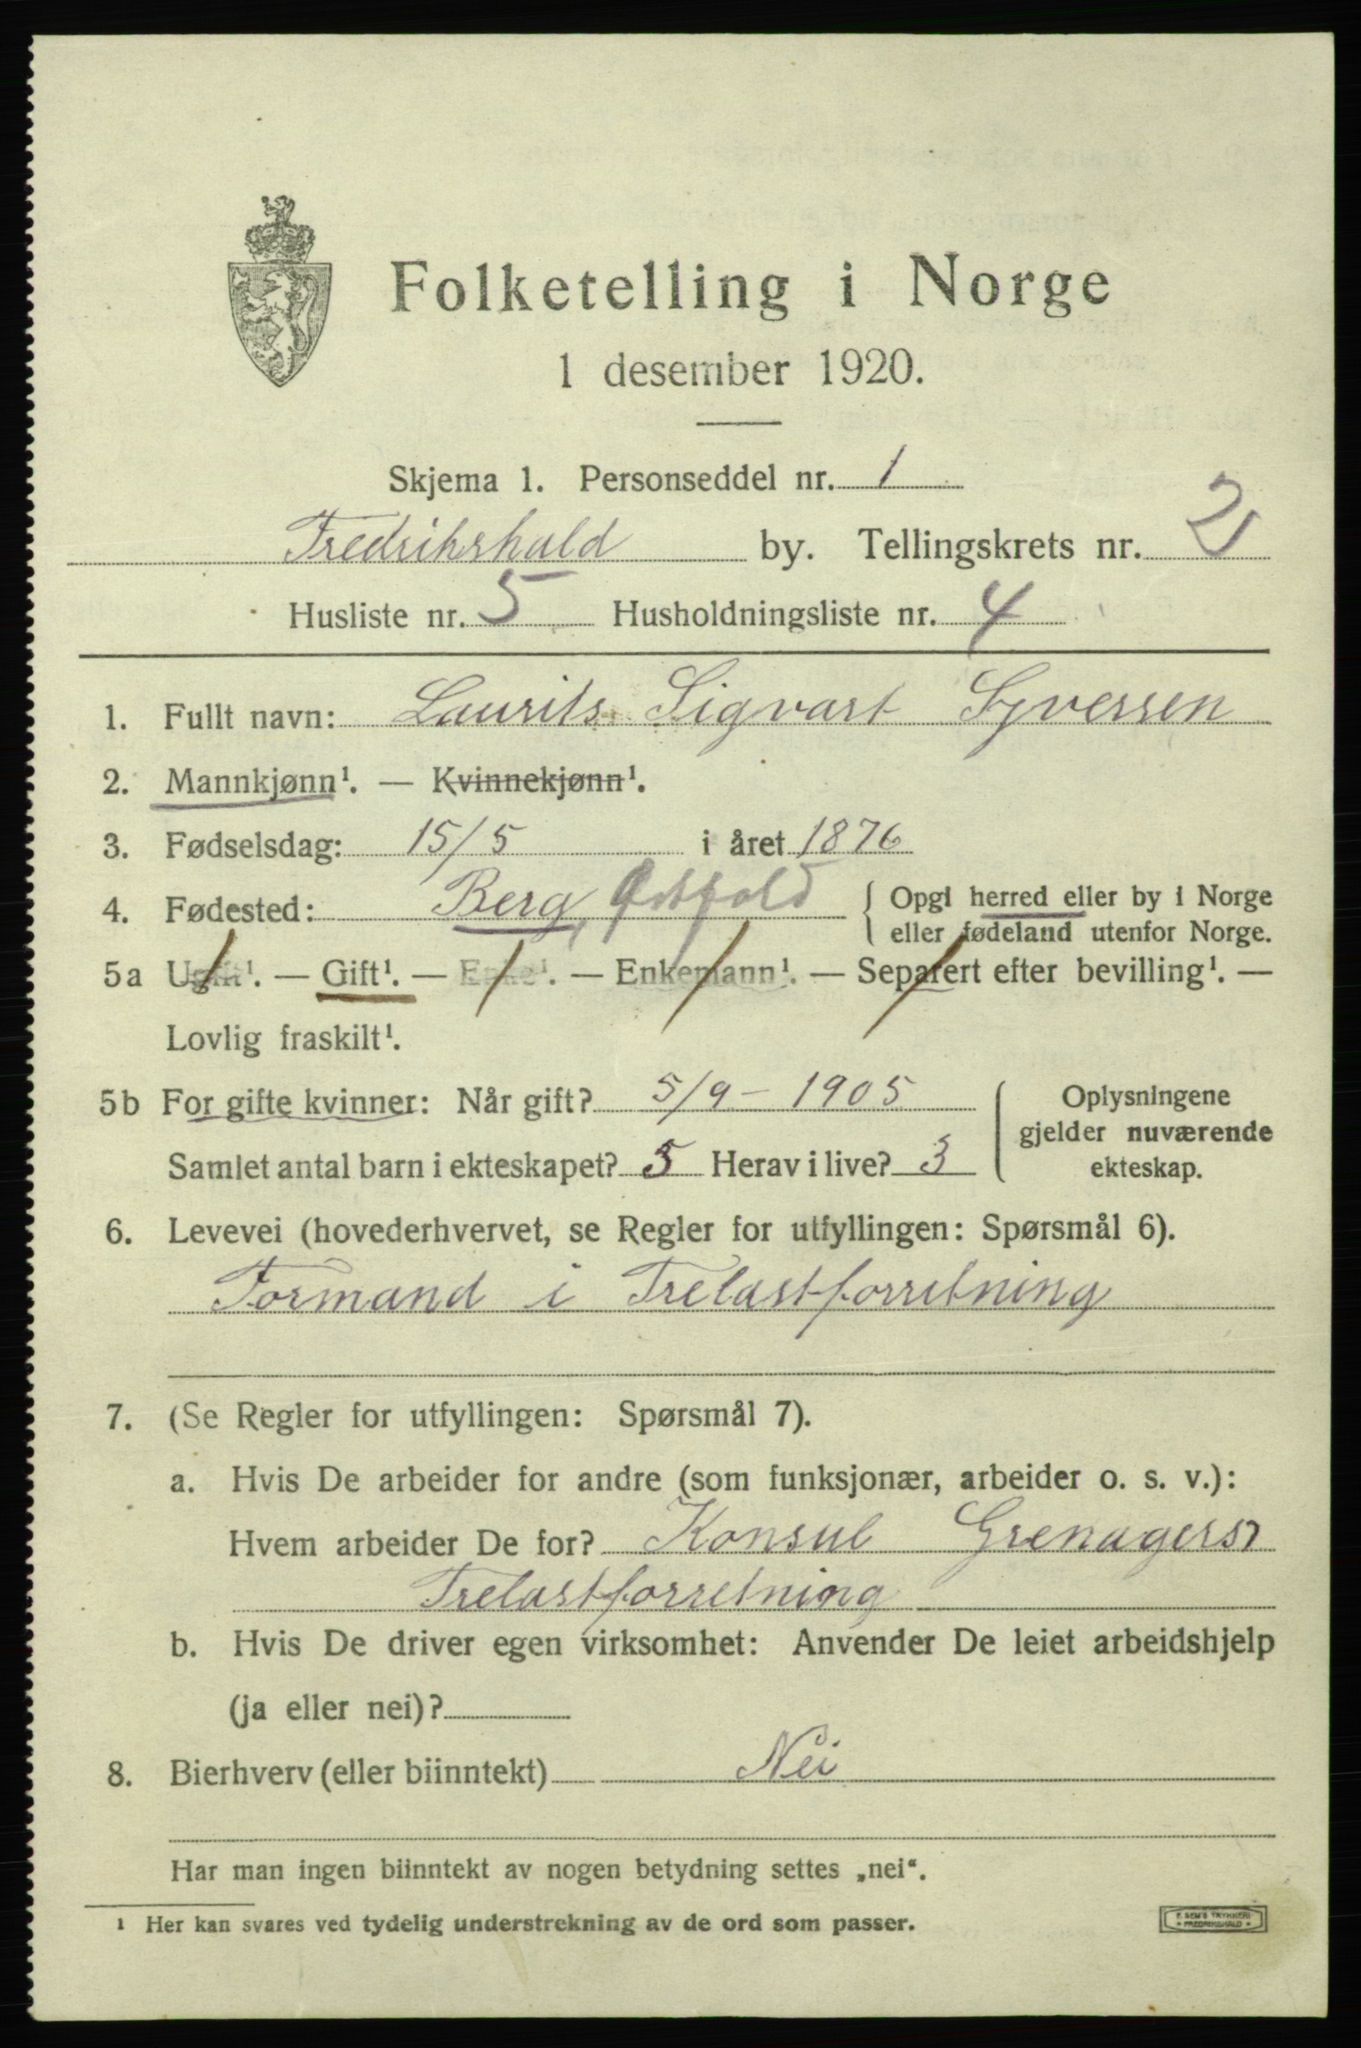 Folketelling i Norge
1 desember 1920.
Skjema 1. Personseddel nr. 1
Fredrikshald by. Tellingskrets nr. 2
Husliste nr. 5 Husholdningsliste nr. 4
1. Fullt navn: Laurits Sigvart Syversen
2. Mannkjønn¹. — Kvinnekjønn¹.
3. Fødselsdag: 15/5 i året 1876
4. Fødested: Berg, Østfold { Opgi herred eller by i Norge
eller fødeland utenfor Norge.
5a Ugift¹. — Gift¹. — Enke¹. — Enkemann¹. — Separert efter bevilling¹. —
Lovlig fraskilt¹.
5b For gifte kvinner: Når gift? 5/9 - 1905
Samlet antal barn i ekteskapet? 5 Herav i live? 3
Oplysningene
gjelder nuværende
ekteskap.
6. Levevei (hovederhvervet, se Regler for utfyllingen: Spørsmål 6).
Formand i Trelastforretning
7. (Se Regler for utfyllingen: Spørsmål 7).
a. Hvis De arbeider for andre (som funksjonær, arbeider o. s. v.):
Hvem arbeider De for? Konsul Grenagers
Trelastforretning
b. Hvis De driver egen virksomhet: Anvender De leiet arbeidshjelp
(ja eller nei)?
8. Bierhverv (eller biinntekt) Nei
Har man ingen biinntekt av nogen betydning settes „nei“.
¹ Her kan svares ved tydelig understrekning av de ord som passer.
E. SEM'S TRYKKERI
FREDRIKSHALD